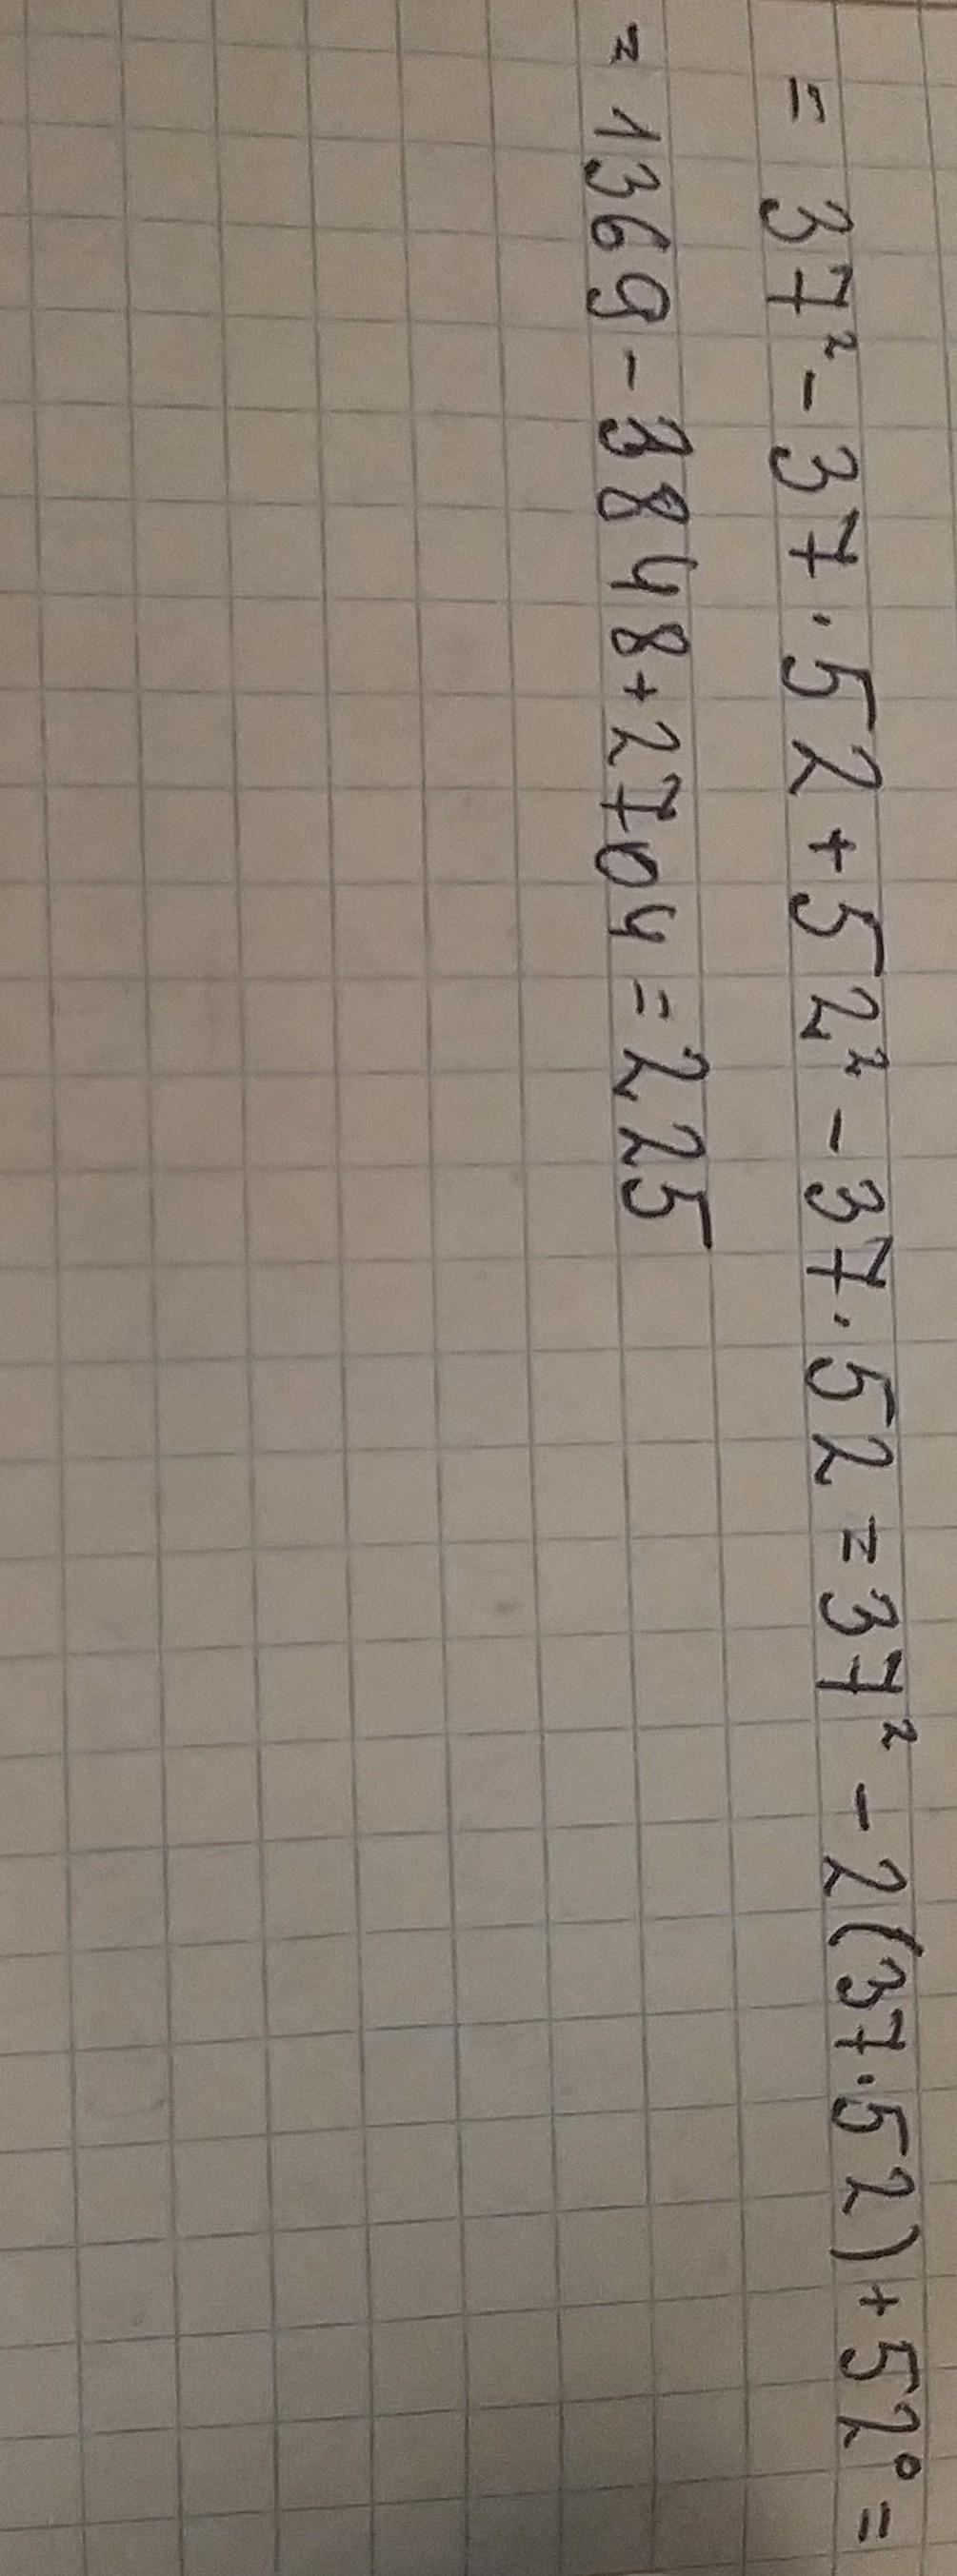 = 37² - 37 · 52 + 52² - 37 · 52 = 37² - 2(37·52) + 52⁰ =
= 1369 - 3848 + 2704 = 225